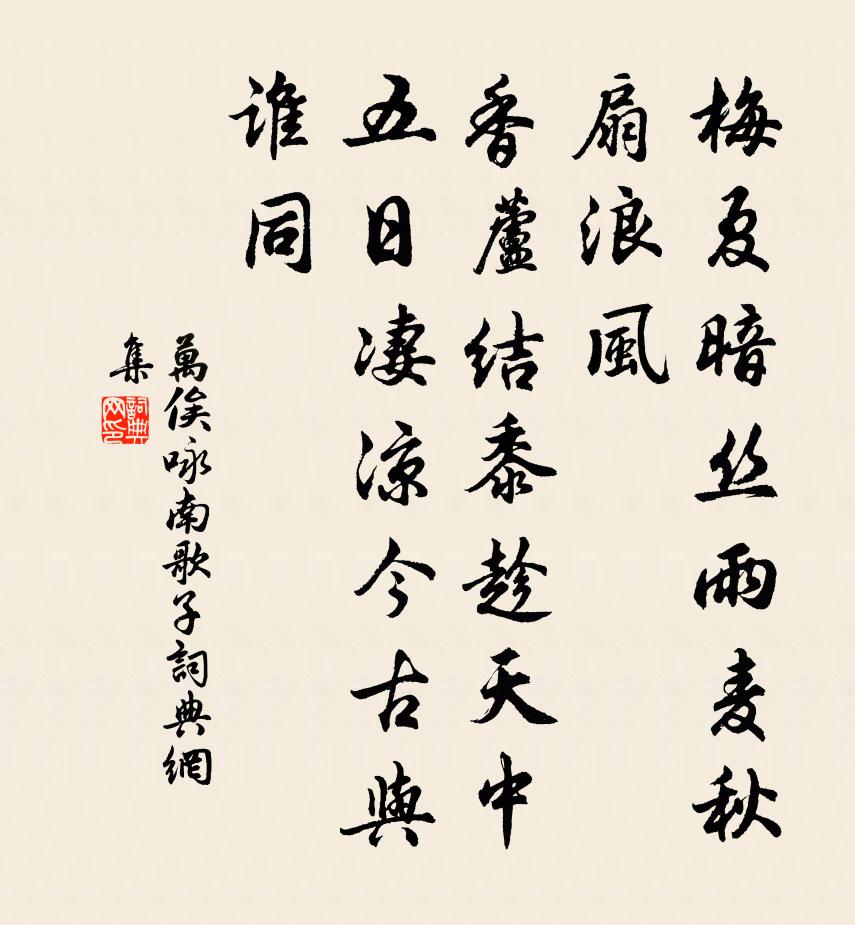 梅夏暗丝雨麦秋
扇浪風
香蘆结黍趁天中
五日凄凉今古與
谁同
萬俟咏南歌子詞典網
集
詞典
网印